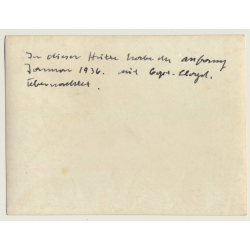 In dieser Hütte habe ich anfang
Januar 1936. mit Capt. Lloyd.
übernachtet.